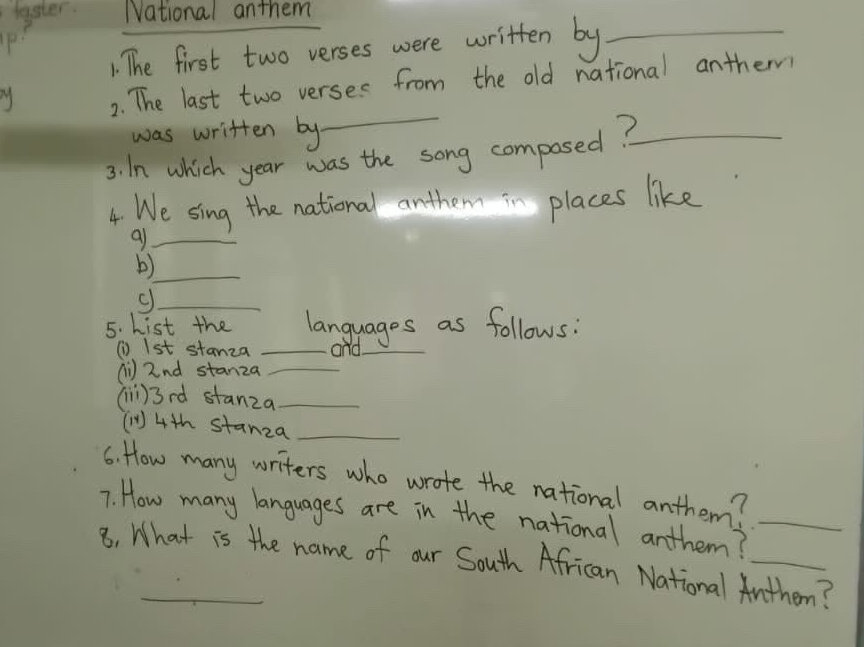 faster.
National anthem
1. The first two verses were written by
2. The last two verses from the old national anthem
was written by
3. In which year was the song composed?
4. We sing the national anthem in places like
a)
b)
c)
5. List the languages as follows:
(i) 1st stanza and
(ii) 2nd stanza
(iii) 3rd stanza
(iv) 4th stanza
6. How many writers who wrote the national anthem?
7. How many languages are in the national anthem?
8. What is the name of our South African National Anthem?